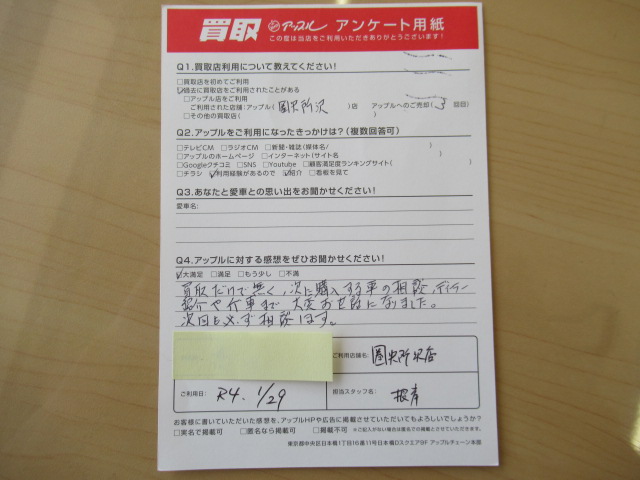 買取 アップル アンケート用紙
この度は当店をご利用いただきありがとうございます!
Q1.買取店利用について教えてください!
□買取店を初めてご利用
□過去に買取店をご利用されたことがある
□アップル店をご利用
ご利用された店舗:アップル(圏央所沢)店 アップルへのご売却(3回目)
□その他の買取店( )
Q2.アップルをご利用になったきっかけは?(複数回答可)
□テレビCM □ラジオCM □新聞・雑誌(媒体名/ )
□アップルのホームページ □インターネット(サイト名 )
□Googleクチコミ □SNS □Youtube □顧客満足度ランキングサイト( )
□チラシ □利用経験があるので □紹介 □看板を見て
Q3.あなたと愛車との思い出をお聞かせください!
愛車名:
Q4.アップルに対する感想をぜひお聞かせください!
□大満足 □満足 □もう少し □不満
買取だけで無く、次に購入する車の相談、ディーラー
紹介や代車まで大変お世話になりました。
次回も必ず相談します。
ご利用店舗名: 圏央所沢店
ご利用日: R4. 1/29 担当スタッフ名: 根岸
お客様に書いていただいた感想を、アップルHPや広告に掲載させていただいてもよろしいでしょうか?
□実名で掲載可 □匿名なら掲載可 □掲載不可 ※ご記入がない場合は匿名での掲載とさせていただきます。
東京都中央区日本橋1丁目16番11号日本橋Dスクエア8F アップルチェーン本部